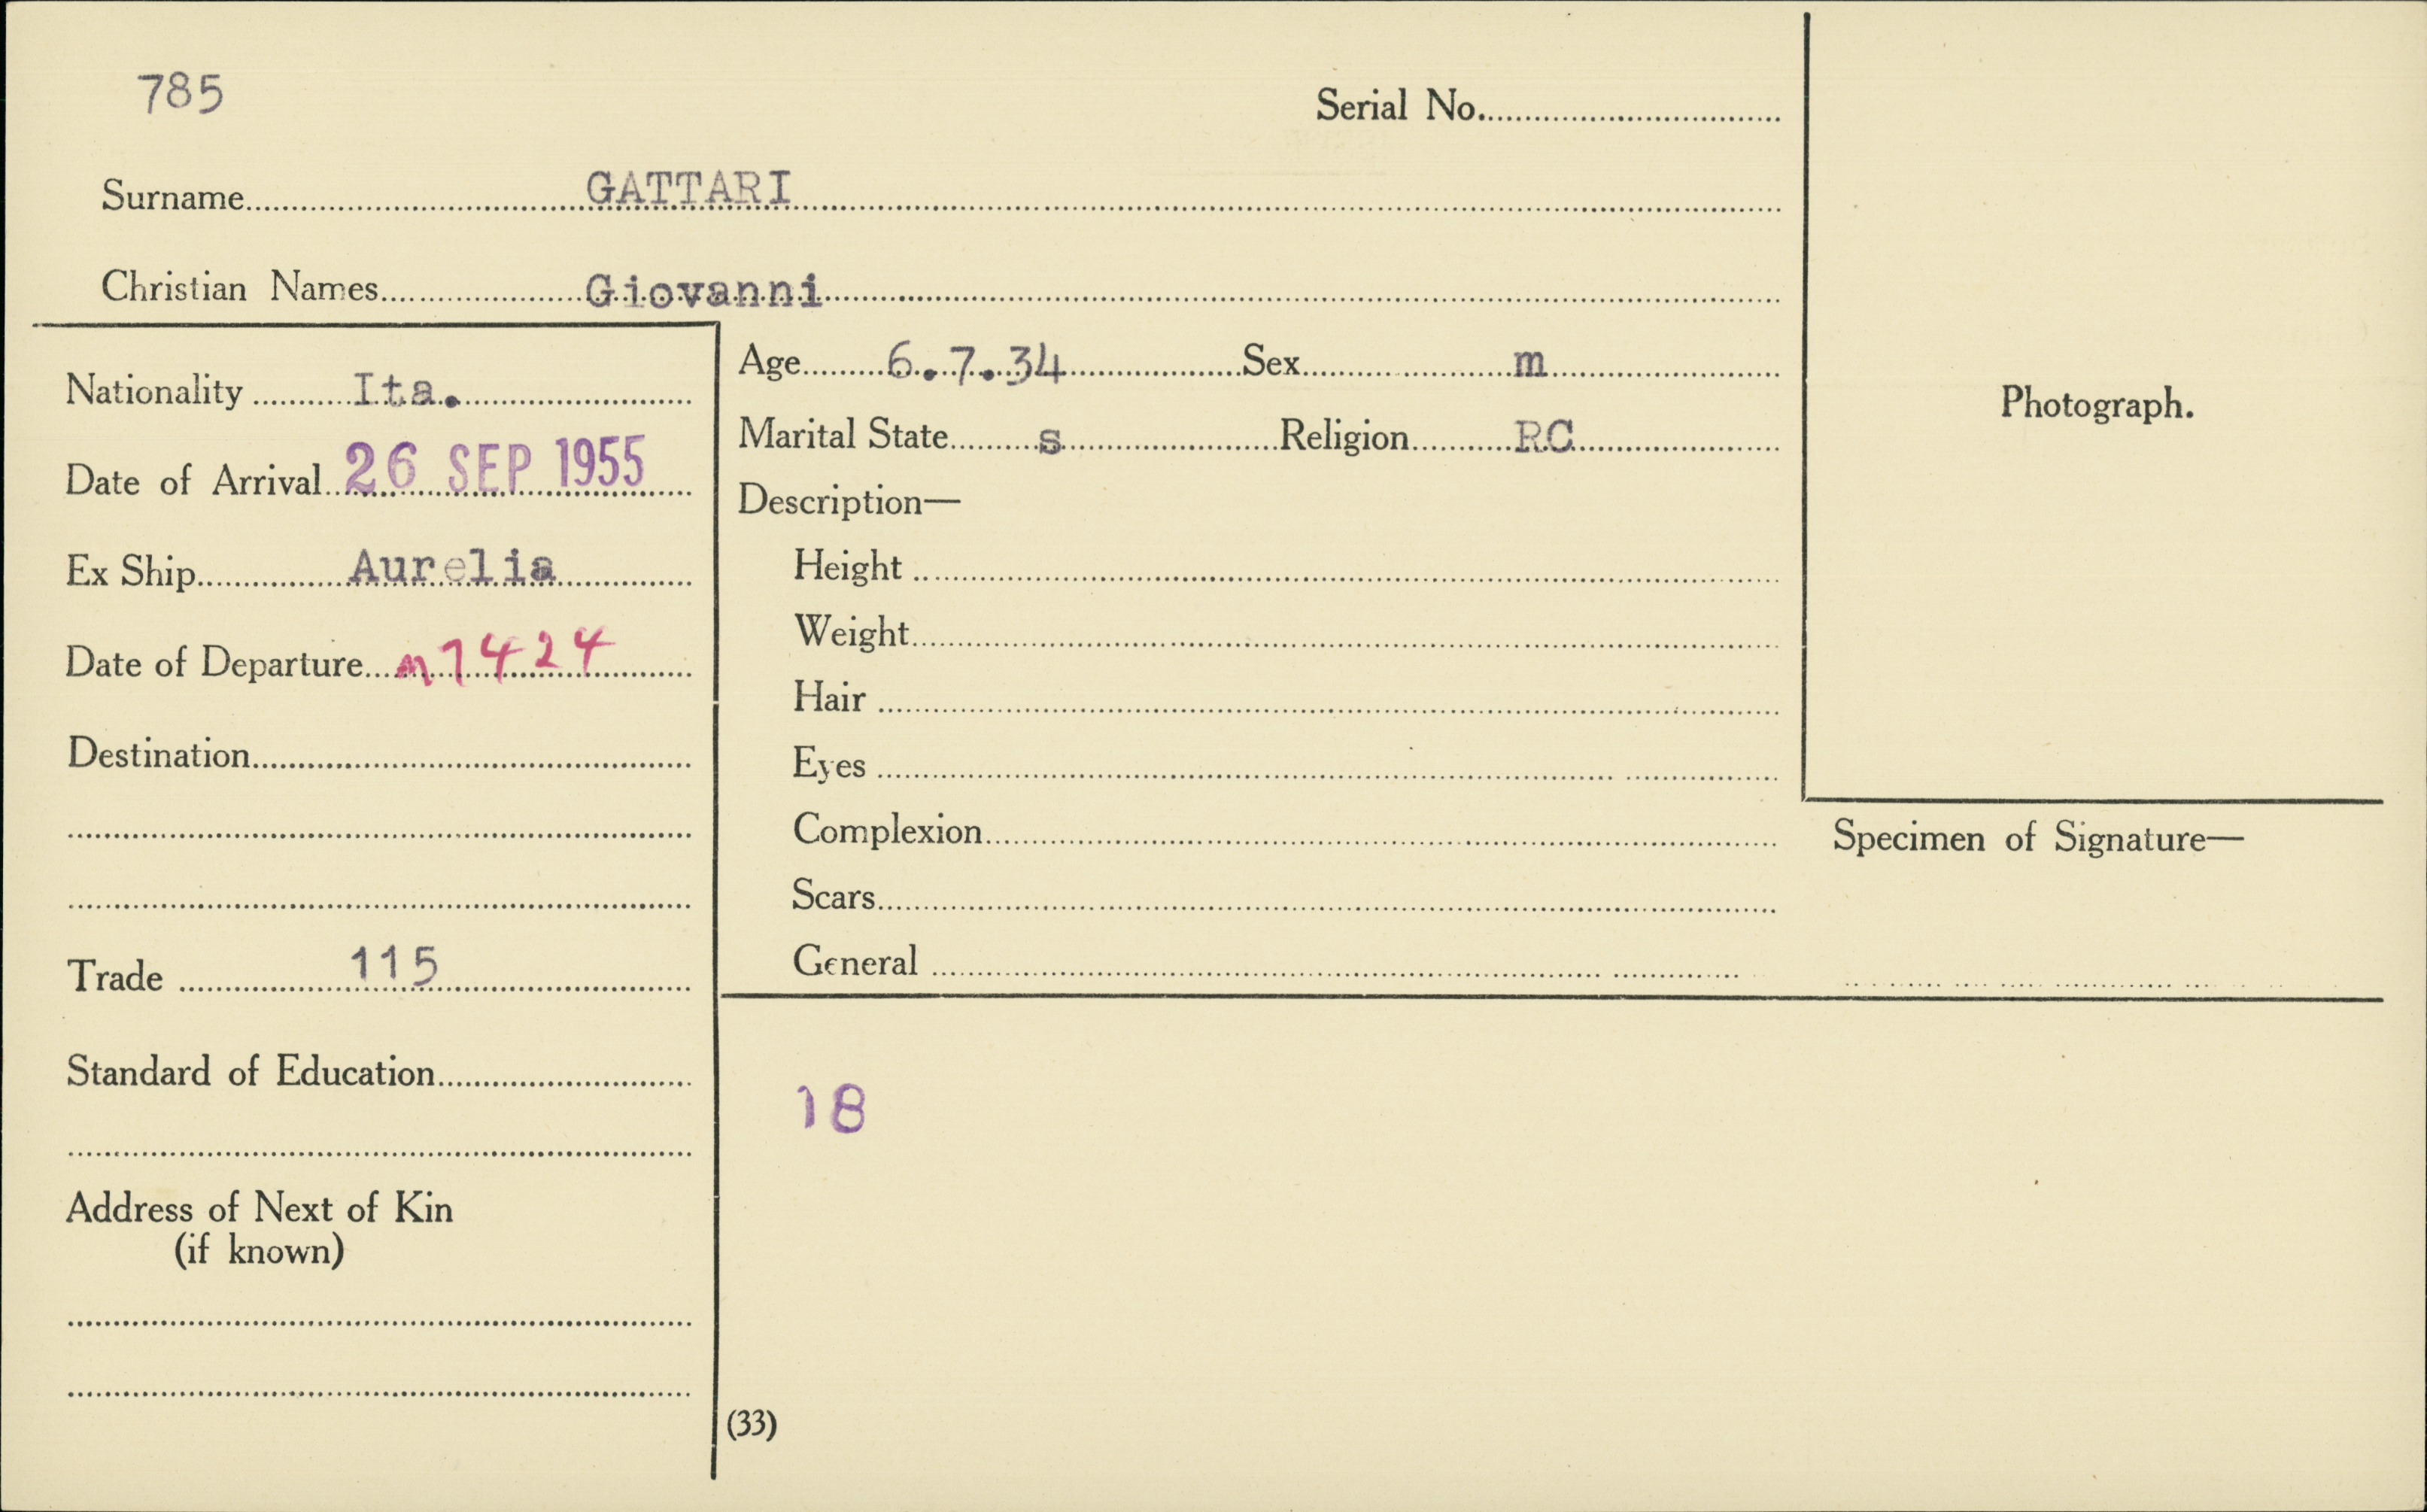 785
Serial No.
Surname GATTARI
Christian Names Giovanni
Nationality Ita.
Date of Arrival 26 SEP 1955
Ex Ship Aurelia
Date of Departure m7424
Destination
Trade 115
Standard of Education
Address of Next of Kin
(if known)
Age 6.7.34 Sex m
Marital State s Religion RC
Description—
Height
Weight
Hair
Eyes
Complexion
Scars
General
18
(33)
Photograph.
Specimen of Signature—